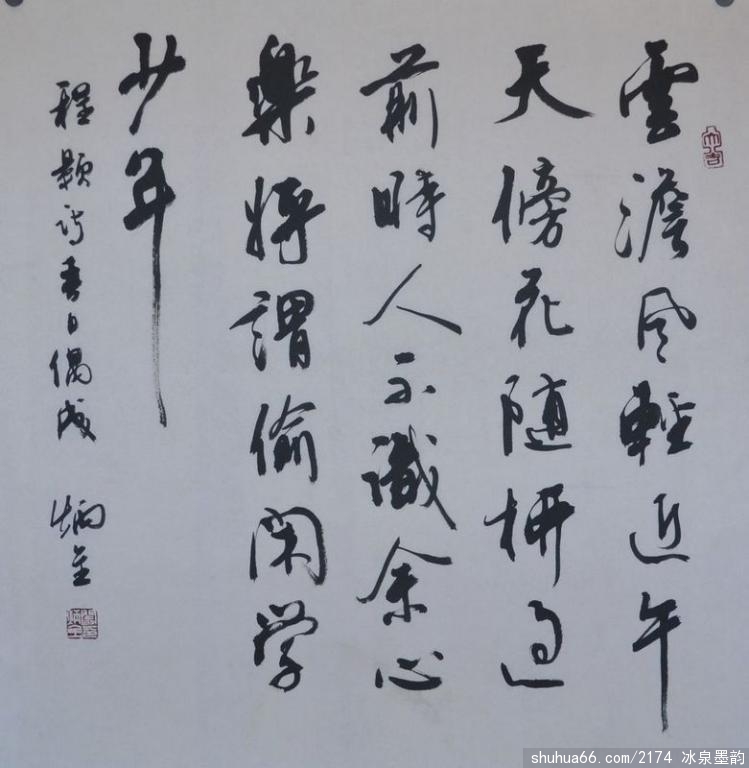 雲澹风輕近午
天傍花随柳過
前時人不識余心
樂将謂偷閑学
少年
程颢诗春日偶成 炳全
shuhua66.com/2174 冰泉墨韵